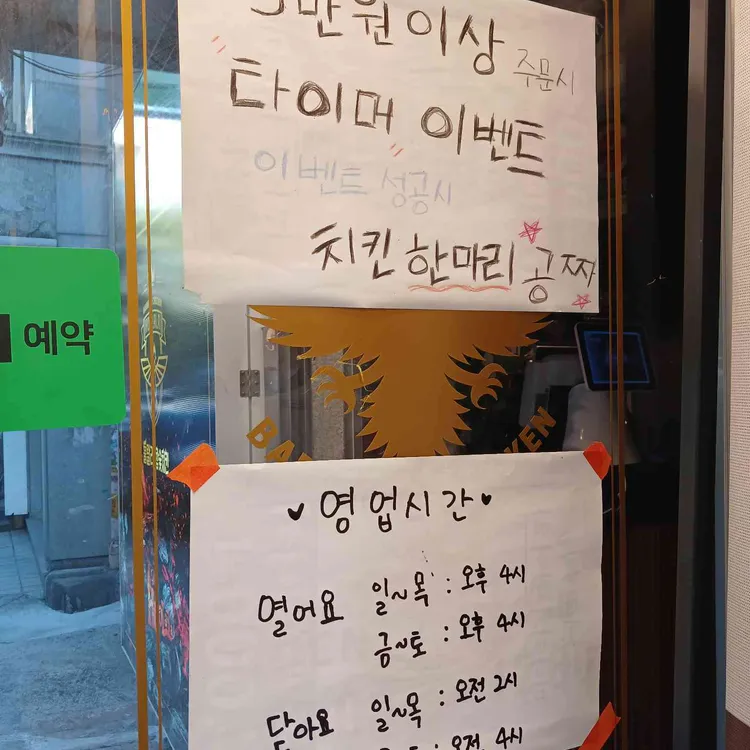 만원이상 주문시
타이머 이벤트
이벤트 성공시
치킨 한마리 공짜
예약
영업시간
열어요 일~목 : 오후 4시
금~토 : 오후 4시
닫아요 일~목 : 오전 2시
오전 4시